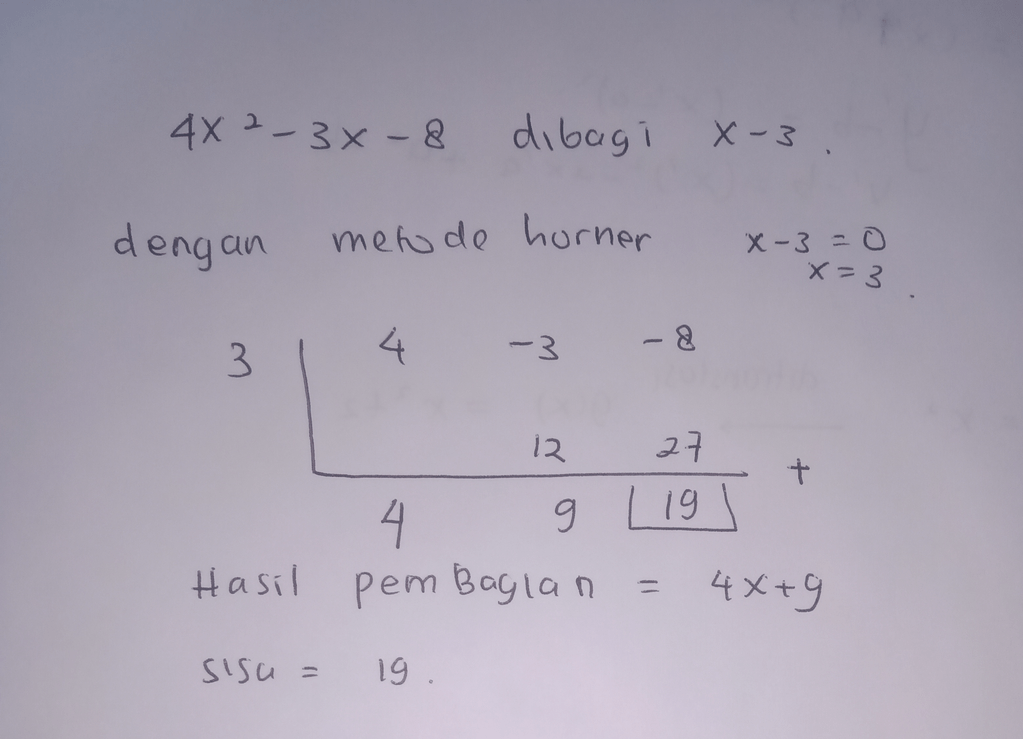 4x² - 3x - 8 dibagi x - 3.
dengan metode horner x - 3 = 0
x = 3.
3 4 -3 -8
12 27 +
4 9 19
Hasil pemBagian = 4x + 9
sisa = 19.